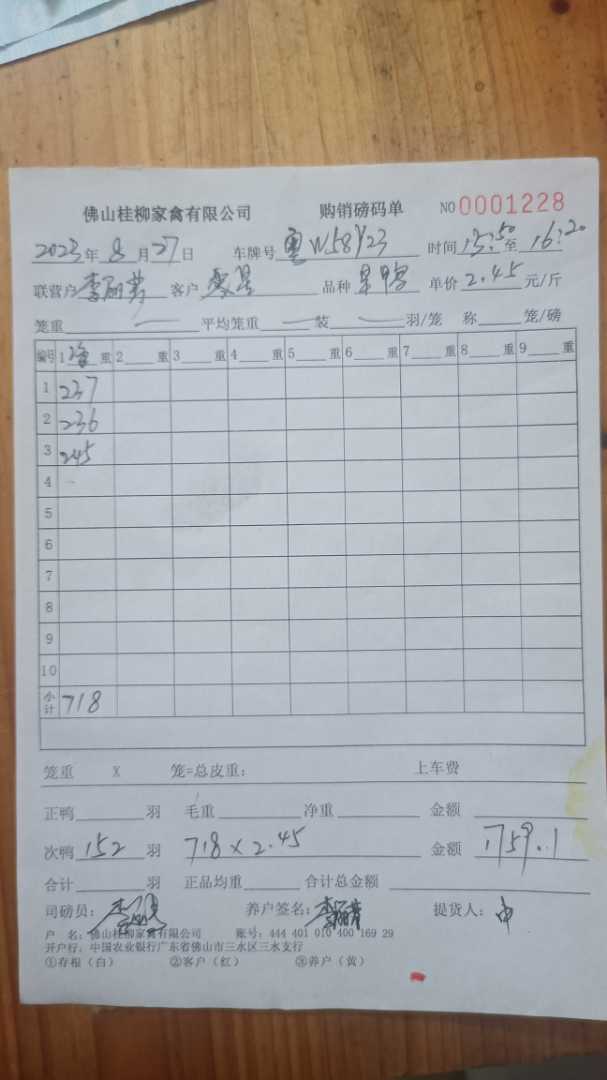 佛山桂柳家禽有限公司 购销磅码单 NO 0001228
2023年 8 月 27 日 车牌号 粤W58Y23 时间 13:50 至 16:20
联营户 客户 品种 单价 2.45 元/斤
笼重 — 平均笼重 — 装 — 羽/笼 称 笼/磅
编号 1 净 重 2 重 3 重 4 重 5 重 6 重 7 重 8 重 9 重
1 237
2 236
3 245
4
5
6
7
8
9
10
小计 718
笼重 X 笼=总皮重: 上车费
正鸭 羽 毛重 净重 金额
次鸭 152 羽 718×2.45 金额 1759.1
合计 羽 正品均重 合计总金额
司磅员: 养户签名: 提货人:
户 名: 佛山桂柳家禽有限公司 账号: 444 401 010 400 169 29
开户行: 中国农业银行广东省佛山市三水区三水支行
①存根（白） ②客户（红） ③养户（黄）